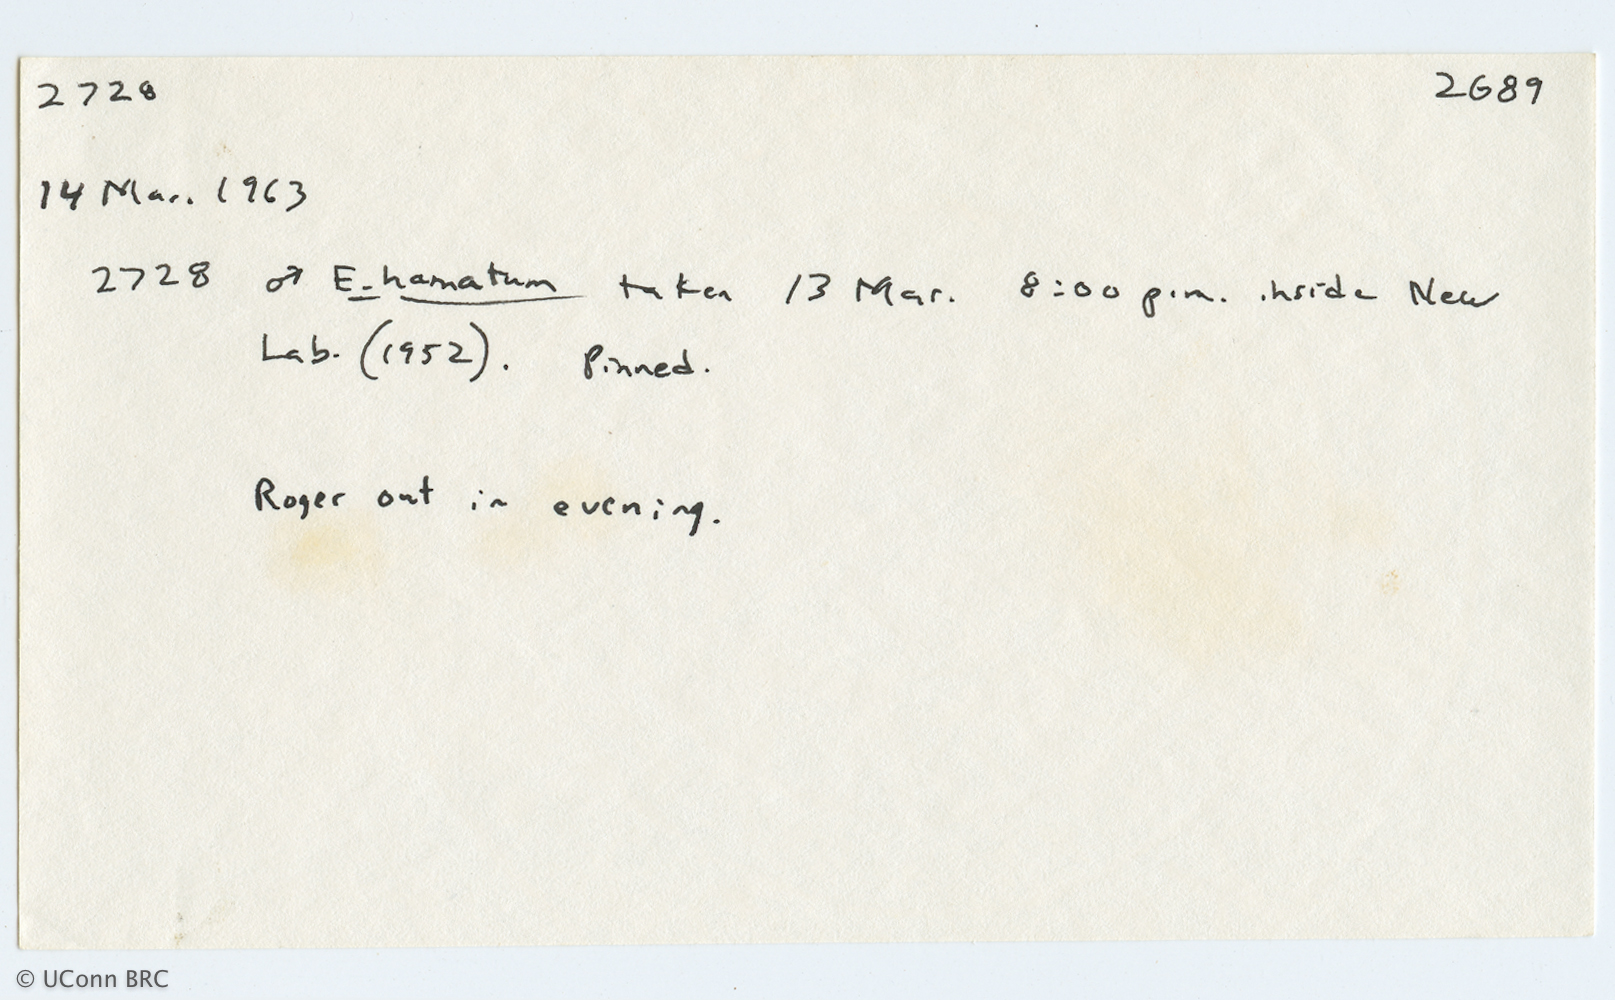 2728 2689
14 Mar. 1963
2728 ♂ E. hamatum taken 13 Mar. 8:00 p.m. inside New
Lab. (1952). Pinned.
Roger out in evening.
© UConn BRC